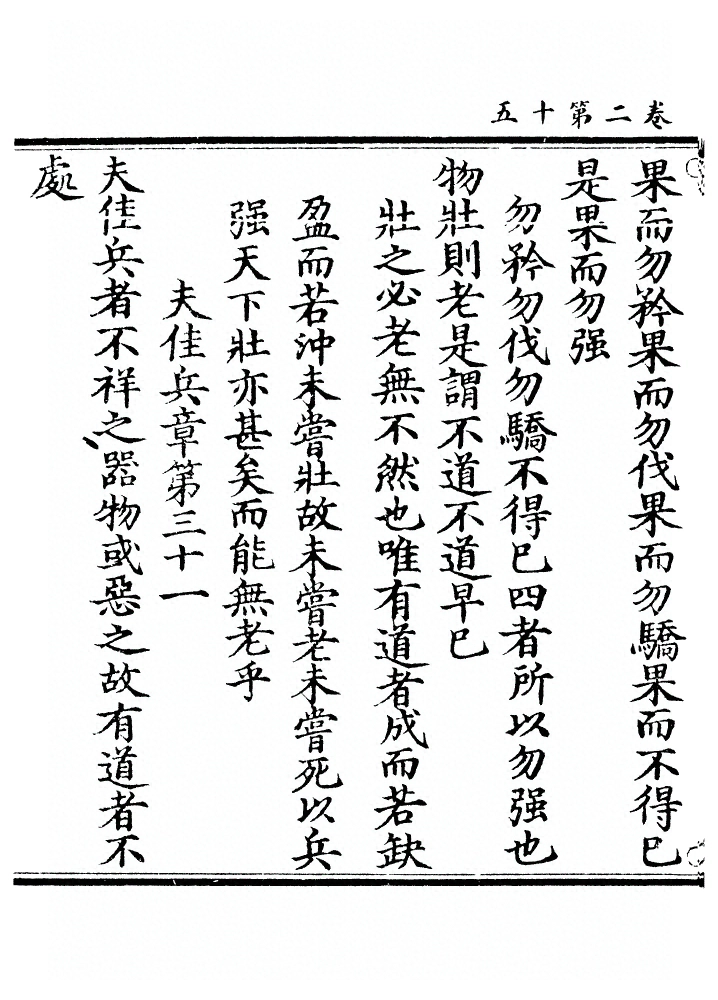 卷二第十五
果而勿矜果而勿伐果而勿驕果而不得已
是果而勿强
勿矜勿伐勿驕不得已四者所以勿强也
物壯則老是謂不道不道早已
壯之必老無不然也唯有道者成而若缺
盈而若沖未嘗壯故未嘗老未嘗死以兵
强天下壯亦甚矣而能無老乎
夫佳兵章第三十一
夫佳兵者不祥之器物或惡之故有道者不
處